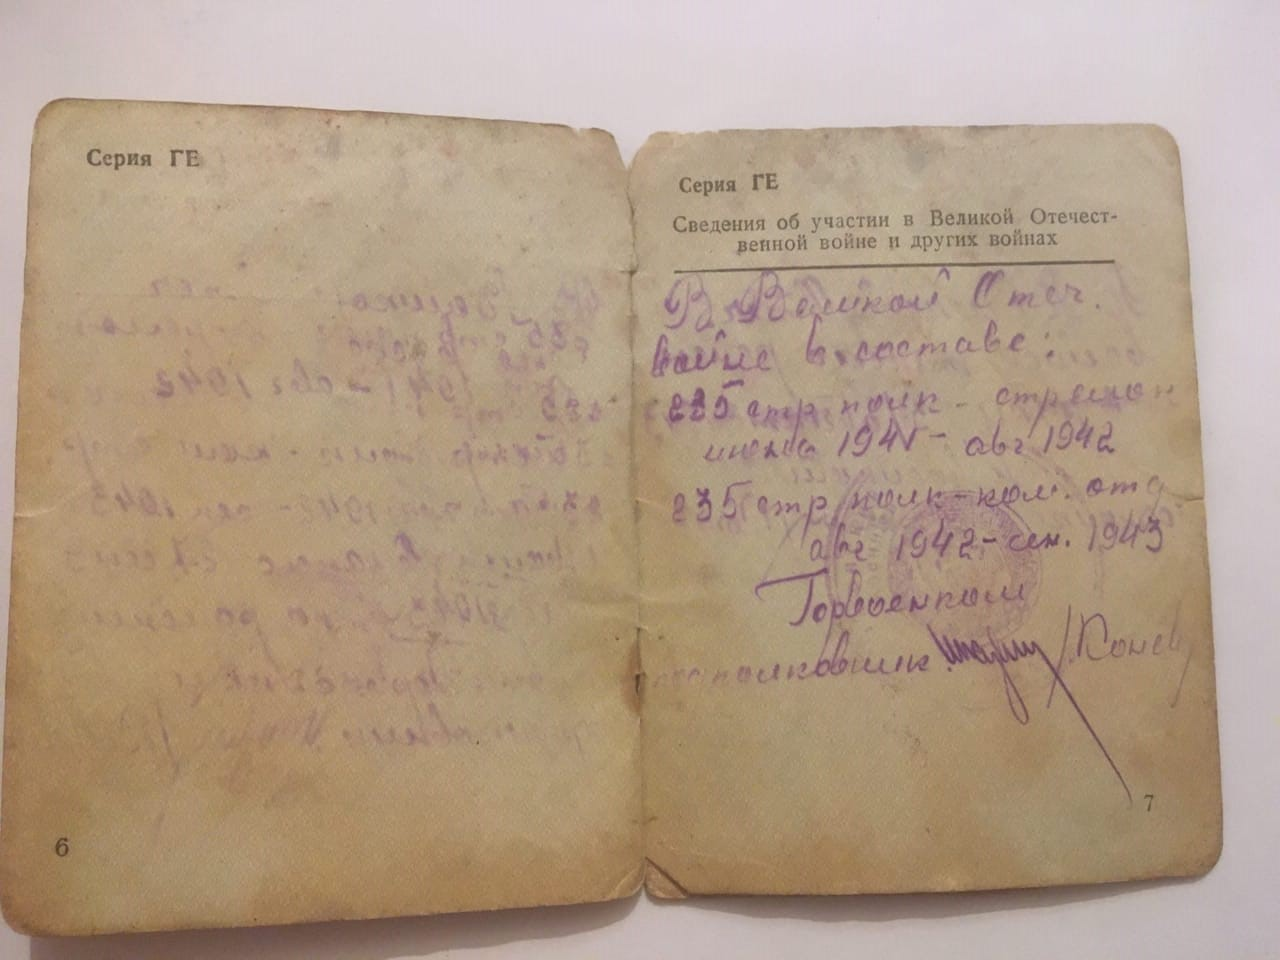 Серия ГЕ
6
Серия ГЕ
Сведения об участии в Великой Отечест-
венной войне и других войнах
В Великой Отеч.
войне в составе:
235 стр полк - стрелок
июнь 1941 - авг 1942
235 стр полк - ком. отд
авг 1942 - сен. 1943
Горвоенком
подполковник
7